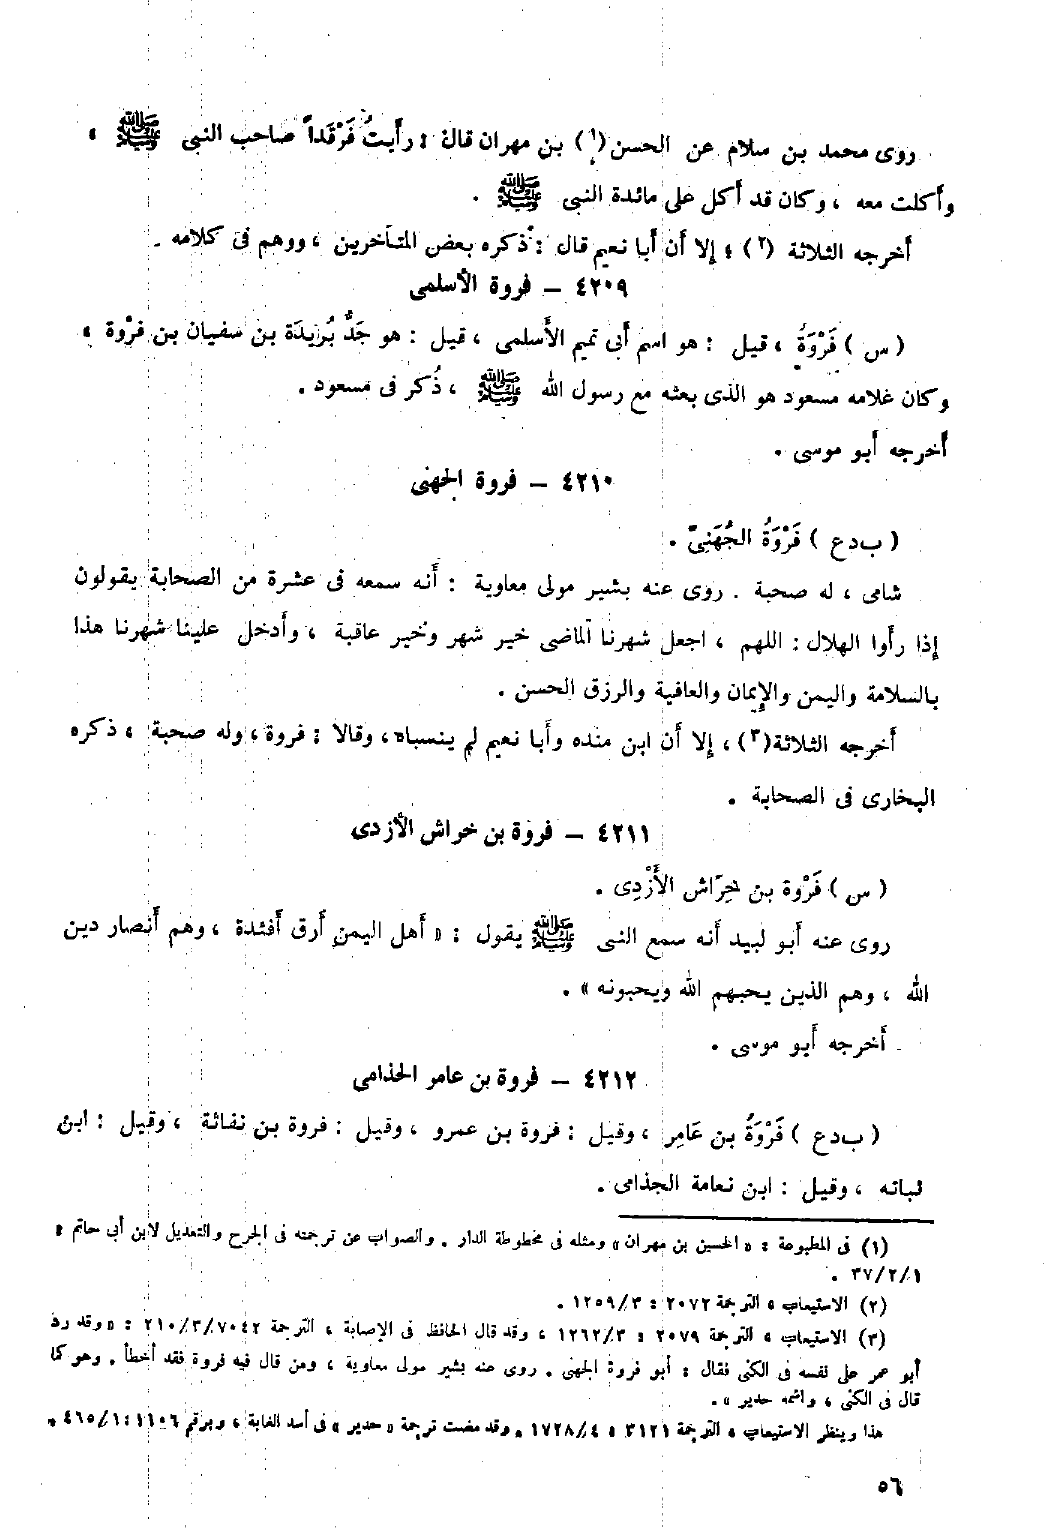 روى محمد بن سلام عن الحسن (١) بن مهران قال : رأَيتُ فَرْقَداً صاحب النبى ﷺ ،
وأَكلت معه ، وكان قد أَكل على مائدة النبى ﷺ .
أَخرجه الثلاثة (٢) ؛ إلا أن أَبا نعيم قال : ذكره بعض المتأخرين ، ووهم فى كلامه .
٤٢٠٩ – فروة الأسلمى
( س ) فَرْوَةُ ، قيل : هو اسم أَبى تميم الأَسلمى ، قيل : هو جَدُّ بُرَيدَة بن سفيان بن فرْوة ،
وكان غلامه مسعود هو الذى بعثه مع رسول الله ﷺ ، ذُكر فى مسعود .
أَخرجه أَبو موسى .
٤٢١٠ – فروة الجهنى
( ب د ع ) فَرْوَةُ الجُهَنِىّ .
شامى ، له صحبة . روى عنه بشير مولى معاوية : أَنه سمعه فى عشرة من الصحابة يقولون
إذا رأَوا الهلال : اللهم ، اجعل شهرنا الماضى خير شهر وخير عاقبة ، وأَدخل علينا شهرنا هذا
بالسلامة واليمن والإِيمان والعافية والرزق الحسن .
أَخرجه الثلاثة (٣) ، إلا أَن ابن منده وأَبا نعيم لم ينسباه ، وقالا : فروة ، وله صحبة ، ذكره
البخارى فى الصحابة .
٤٢١١ – فروة بن خراش الأزدى
( س ) فَرْوة بن خِرَاش الأَزْدِى .
روى عنه أَبو لبيد أَنه سمع النبى ﷺ يقول : « أَهل اليمن أَرق أَفئدة ، وهم أَنصار دين
الله ، وهم الذين يحبهم الله ويحبونه » .
أَخرجه أَبو موسى .
٤٢١٢ – فروة بن عامر الجذامى
( ب د ع ) فَرْوَةُ بن عَامِر ، وقيل : فروة بن عمرو ، وقيل : فروة بن نفاثة ، وقيل : ابن
نباته ، وقيل : ابن نعامة الجذامى .
(١) فى المطبوعة : « الحسين بن مهران » ومثله فى مخطوطة الدار . والصواب عن ترجمته فى الجرح والتعديل لابن أبى حاتم :
٣٧/٢/١ .
(٢) الاستيعاب ، الترجمة ٢٠٧٢ : ١٢٥٩/٣ .
(٣) الاستيعاب ، الترجمة ٢٠٧٩ : ١٢٦٢/٣ ، وقد قال الحافظ فى الإصابة ، الترجمة ٢١٠/٣/٧٠٤٢ : « وقد رد
أبو عمر على نفسه فى الكنى فقال : أبو فروة الجهنى . روى عنه بشير مولى معاوية ، ومن قال فيه فروة فقد أخطأ . وهو كما
قال فى الكنى ، واسمه حدير » .
هذا وينظر الاستيعاب ، الترجمة ٣١٢١ : ١٧٢٨/٤ . وقد مضت ترجمة « حدير » فى أسد الغابة ، وبرقم ١١٠٦ : ٤٦٥/١ .
٥٦